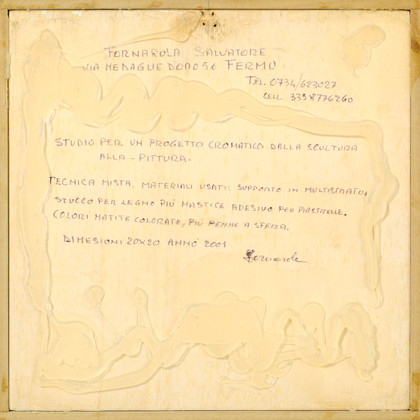 FORNAROLA SALVATORE
VIA MEDAGLIE D'ORO 50 FERMO
TEL. 0734/623027
CELL. 3358776260
STUDIO PER UN PROGETTO CROMATICO DALLA SCULTURA
ALLA - PITTURA -
TECNICA MISTA, MATERIALI USATI: SUPPORTO IN MULTISTRATO,
STUCCO PER LEGNO PIÙ MASTICE ADESIVO PER PIASTRELLE.
COLORI MATITE COLORATE, PIÙ PENNE A SFERA.
DIMESIONI 20X20 ANNO 2001
Fornarola